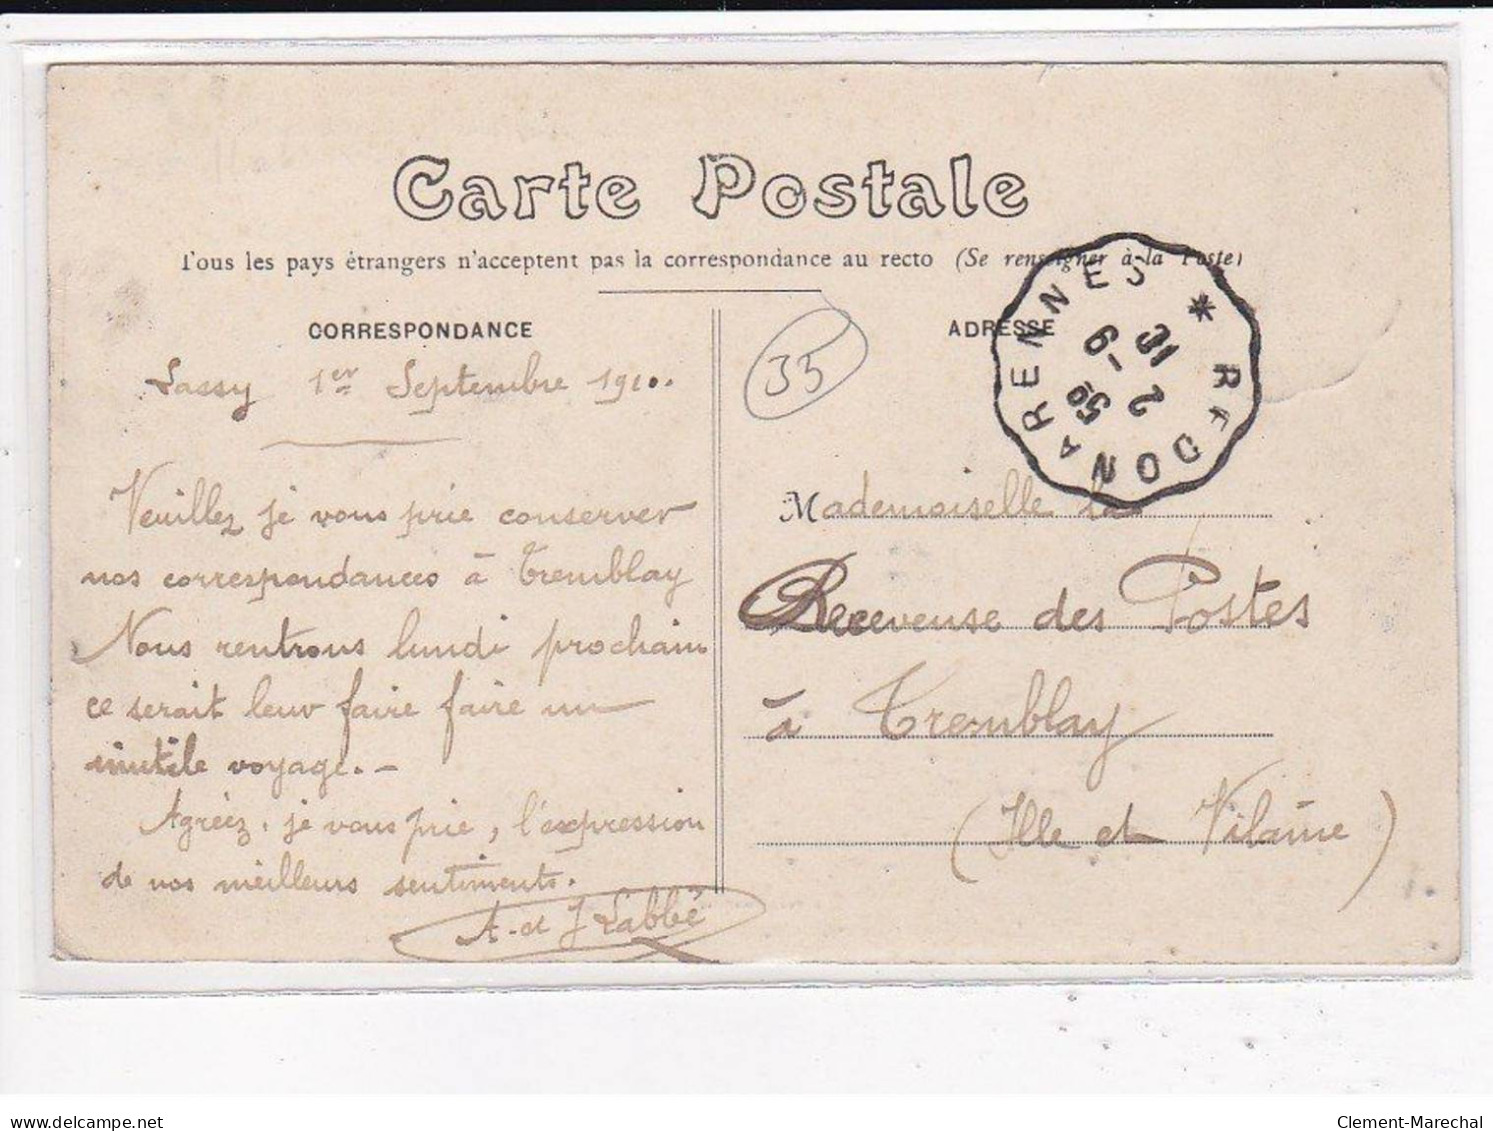 Carte Postale
Tous les pays étrangers n'acceptent pas la correspondance au recto (Se renseigner à la Poste)
CORRESPONDANCE
Lassy 1er Septembre 1910.
Veuillez je vous prie conserver
nos correspondances à Tremblay
Nous rentrons lundi prochain
ce serait leur faire faire un
inutile voyage. -
Agréez, je vous prie, l'expression
de nos meilleurs sentiments.
A. et J Labbé
35
ADRESSE
REDON A RENNES *
31
2
6-50
Mademoiselle la
Receveuse des Postes
à Tremblay
(Ille et Vilaine)
delcampe.net
Clement-Marechal